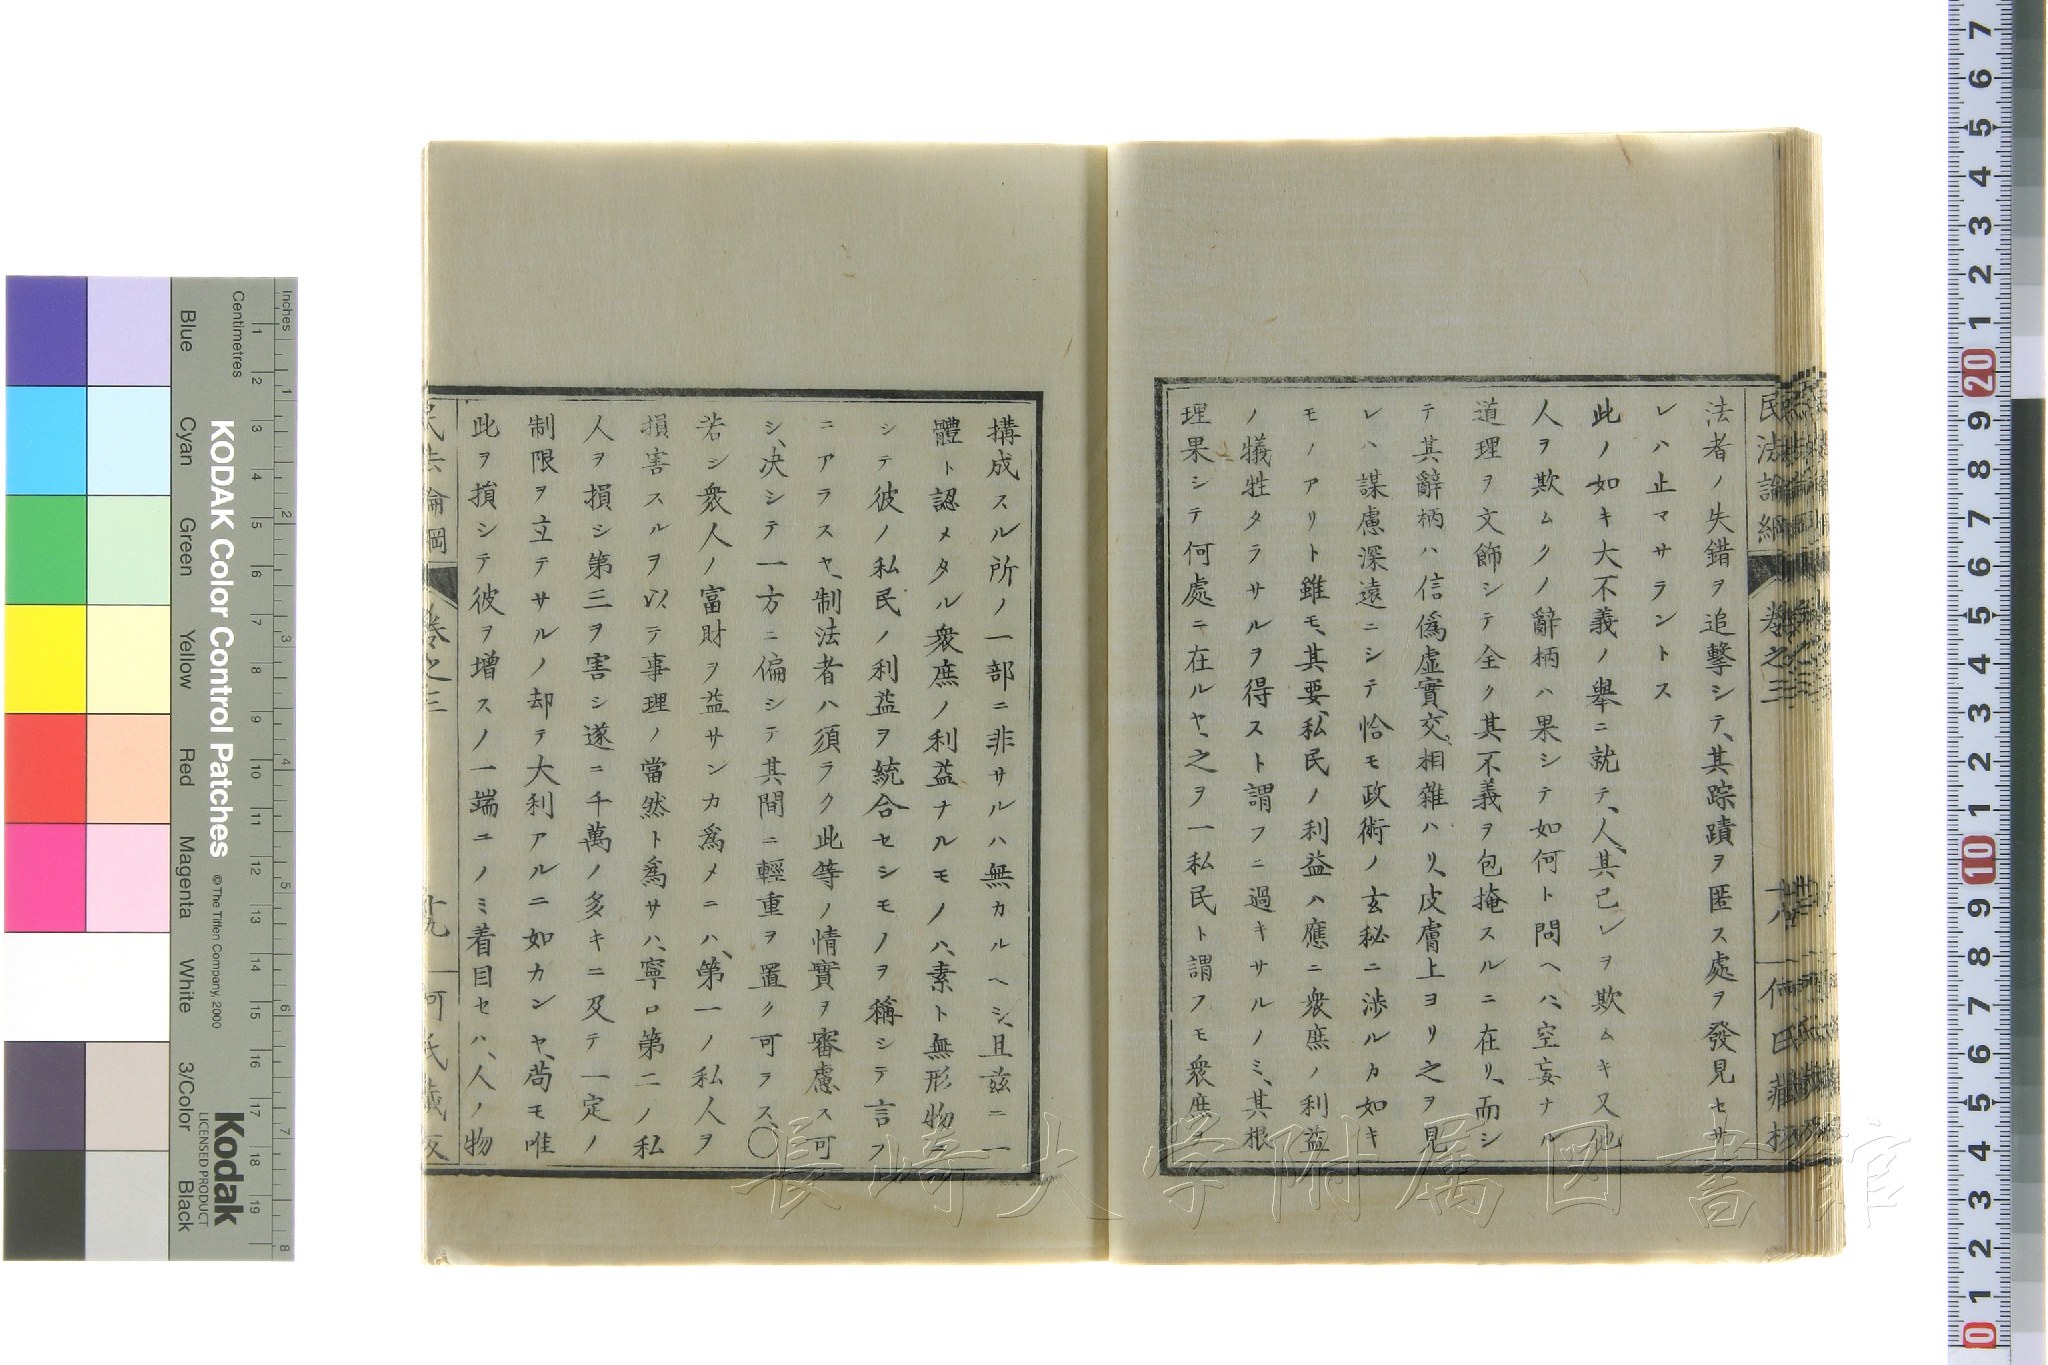 民法論綱
卷之三
十八
何氏藏板
法者ノ失錯ヲ追擊シテ、其踪蹟ヲ匿ス處ヲ發見セサ
レハ止マサラントス
此ノ如キ大不義ノ舉ニ就テ、人、其己レヲ欺ムキ又他
人ヲ欺ムクノ辭柄ハ果シテ如何ト問ヘハ、空妄ナル
道理ヲ文飾シテ全ク其不義ヲ包掩スルニ在リ、而シ
テ其辭柄ハ信僞虛實、交相雜ハリ、皮膚上ヨリ之ヲ見
レハ謀慮深遠ニシテ恰モ政術ノ玄秘ニ渉ルカ如キ
モノアリト雖モ、其要、私民ノ利益ハ應ニ衆庶ノ利益
ノ犧牲タラサルヲ得スト謂フニ過キサルノミ、其根
理果シテ何處ニ在ルヤ、之ヲ一私民ト謂フモ衆庶ヲ
構成スル所ノ一部ニ非サルハ無カルヘシ、且玆ニ一
體ト認メタル衆庶ノ利益ナルモノハ、素ト無形物ニ
シテ彼ノ私民ノ利益ヲ統合セシモノヲ稱シテ言フ
ニアラスヤ、制法者ハ須ラク此等ノ情實ヲ審慮ス可
シ、決シテ一方ニ偏シテ其間ニ輕重ヲ置ク可ラス、〇
若シ衆人ノ富財ヲ益サンカ爲メニハ、第一ノ私人ヲ
損害スルヲ以テ事理ノ當然ト爲サハ、寧ロ第二ノ私
人ヲ損シ第三ヲ害シ遂ニ千萬ノ多キニ及テ一定ノ
制限ヲ立テサルノ却テ大利アルニ如カンヤ、尚モ唯
此ヲ損シテ彼ヲ增スノ一端ニノミ着目セハ、人ノ物
民法論綱
卷之三
十九
何氏藏板
長崎大学附属図書館
KODAK Color Control Patches
© The Tiffen Company, 2000
Kodak
LICENSED PRODUCT
Inches
Centimetres
Blue
Cyan
Green
Yellow
Red
Magenta
White
3/Color
Black